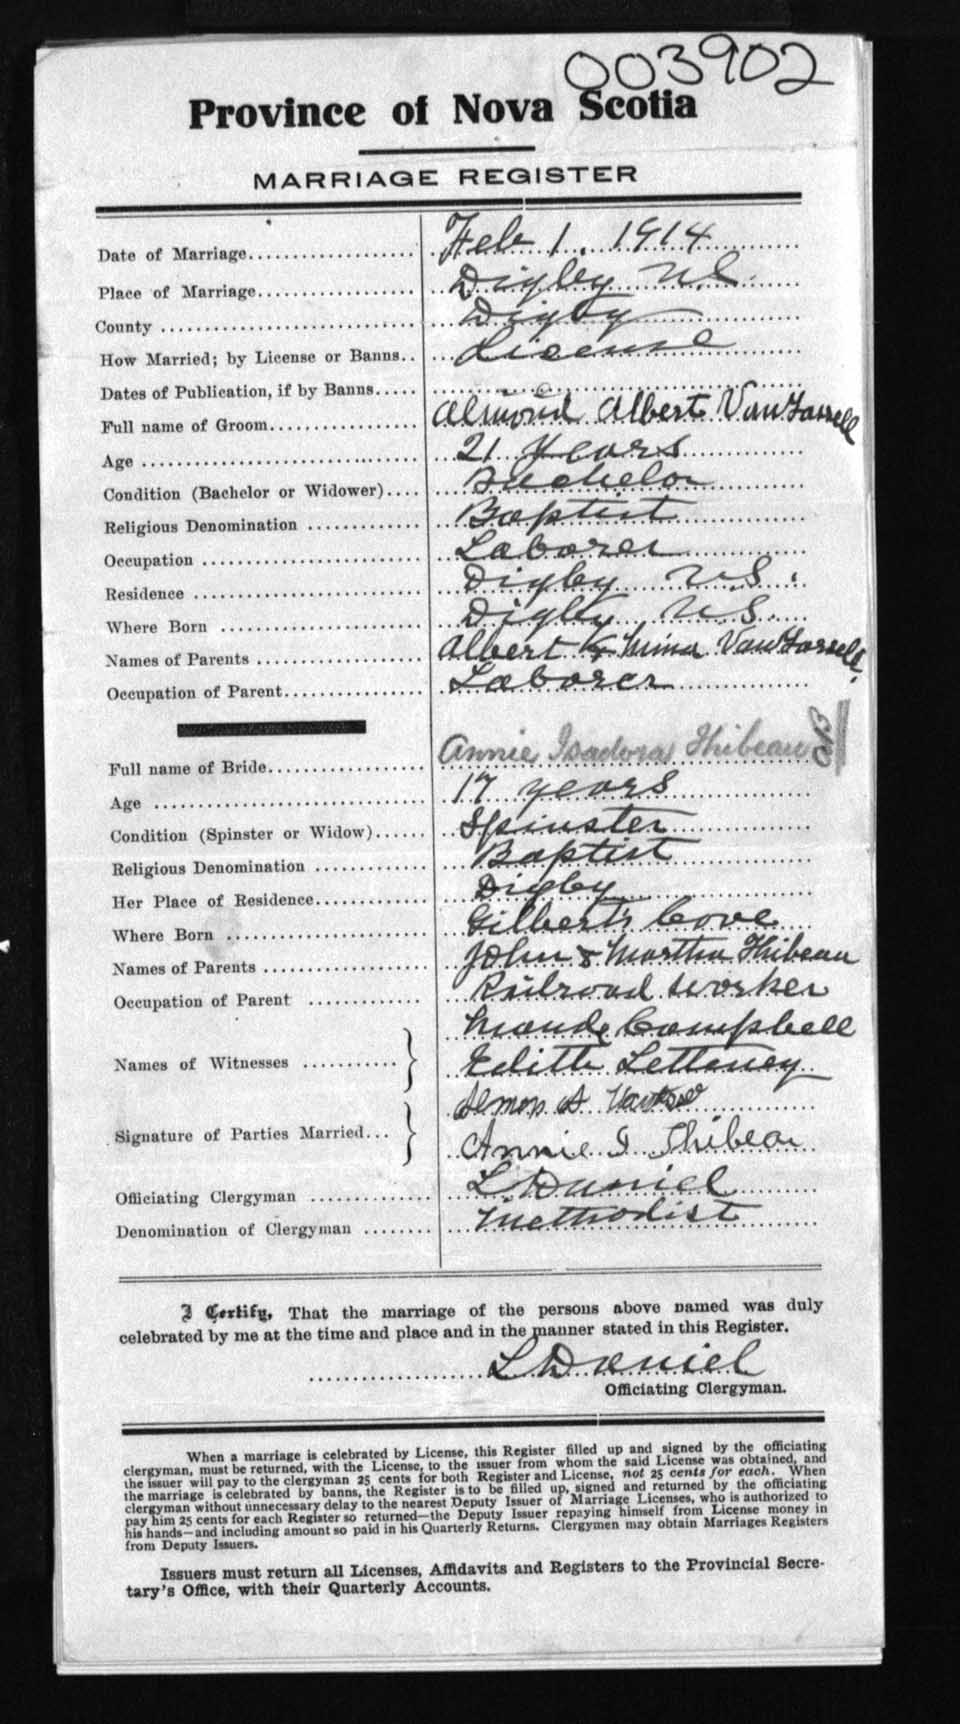 003902
Province of Nova Scotia
MARRIAGE REGISTER
Date of Marriage Feb 1. 1914
Place of Marriage Digby N S.
County Digby
How Married; by License or Banns.. License
Dates of Publication, if by Banns
Full name of Groom Almond Albert VanTassell
Age 21 years
Condition (Bachelor or Widower) Bachelor
Religious Denomination Baptist
Occupation Laborer
Residence Digby N S.
Where Born Digby N S.
Names of Parents Albert & Mina VanTassell.
Occupation of Parent Laborer
Full name of Bride Annie Isadora Thibeau
Age 17 years
Condition (Spinster or Widow) Spinster
Religious Denomination Baptist
Her Place of Residence Digby
Where Born Gilberts Cove
Names of Parents John & Martha Thibeau
Occupation of Parent Railroad worker
Maude Campbell
Names of Witnesses Edith Letteney
Almon A
Signature of Parties Married... Annie I Thibeau
Officiating Clergyman L Daniel
Denomination of Clergyman Methodist
I Certify, That the marriage of the persons above named was duly
celebrated by me at the time and place and in the manner stated in this Register.
L Daniel
Officiating Clergyman.
When a marriage is celebrated by License, this Register filled up and signed by the officiating
clergyman, must be returned, with the License, to the issuer from whom the said License was obtained, and
the issuer will pay to the clergyman 25 cents for both Register and License, not 25 cents for each. When
the marriage is celebrated by banns, the Register is to be filled up, signed and returned by the officiating
clergyman without unnecessary delay to the nearest Deputy Issuer of Marriage Licenses, who is authorized to
pay him 25 cents for each Register so returned—the Deputy Issuer repaying himself from License money in
his hands—and including amount so paid in his Quarterly Returns. Clergymen may obtain Marriages Registers
from Deputy Issuers.
Issuers must return all Licenses, Affidavits and Registers to the Provincial Secre-
tary's Office, with their Quarterly Accounts.